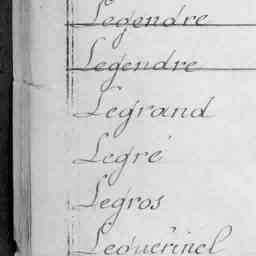 Legendre
Legendre
Legrand
Legré
Legros
Lequérinel